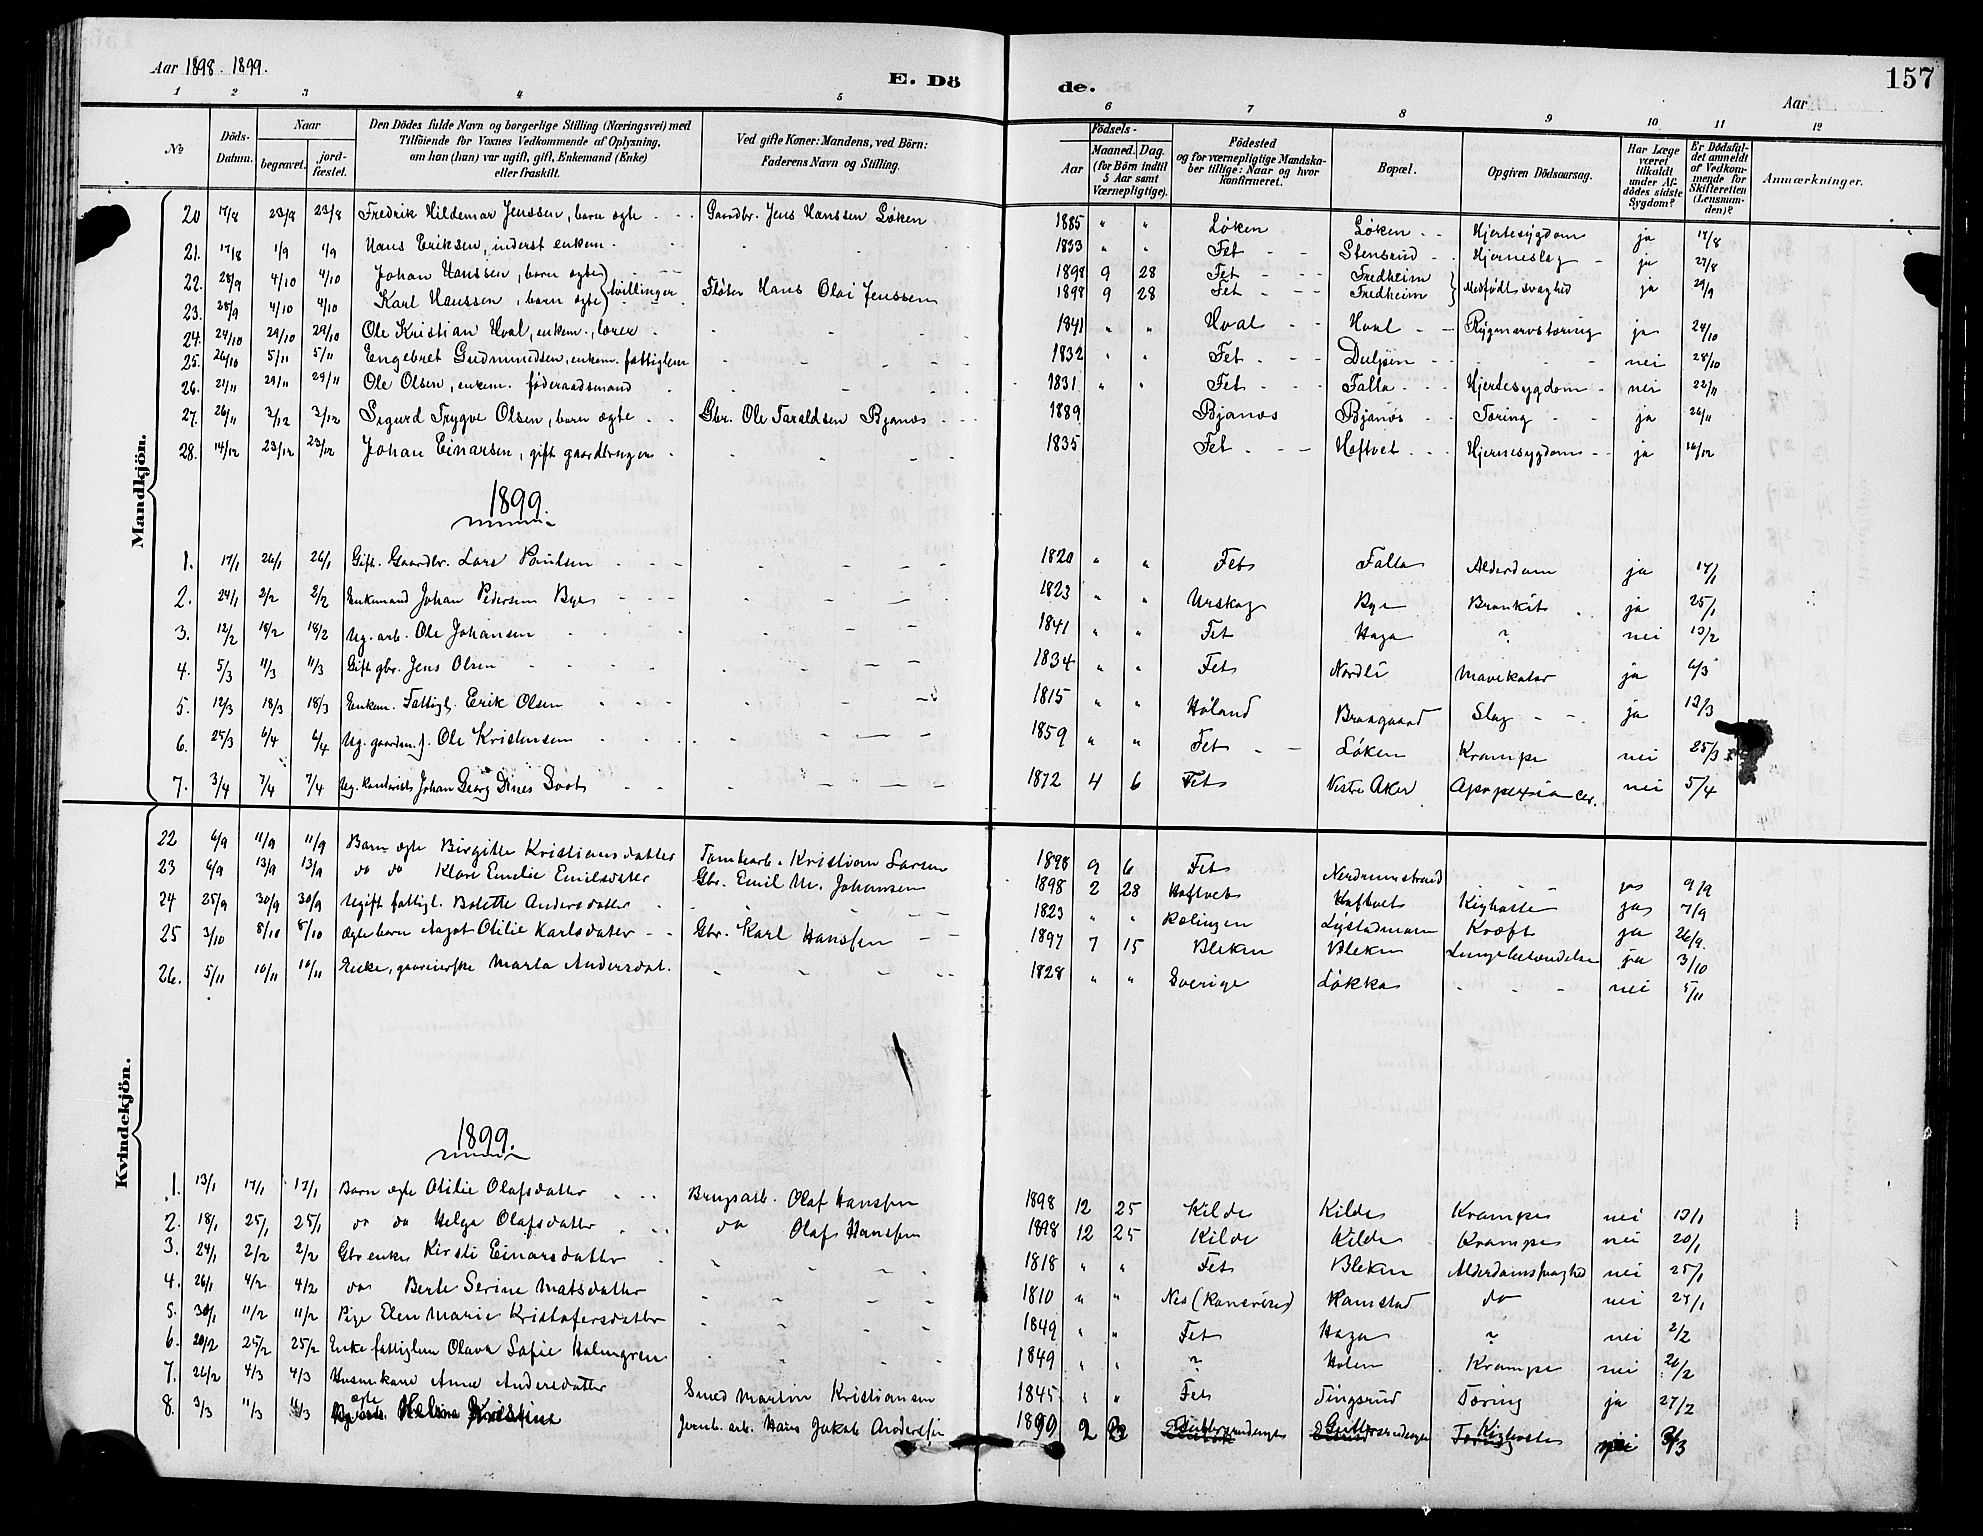 Aar 1898. 1899.
E. Dö de.
Aar
157
1 2 3 4 5 6 7 8 9 10 11 12
No
Döds-Datum.
Naar
begravet.
jord-fæstet.
Den Dödes fulde Navn og borgerlige Stilling (Næringsvei) med
Tilföiende for Voxnes Vedkommende af Oplysning,
om han (hun) var ugift, gift, Enkemand (Enke)
eller fraskilt.
Ved gifte Koner: Mandens, ved Börn:
Faderens Navn og Stilling.
Födsels-
Aar
Maaned. Dag.
(for Börn indtil
5 Aar samt
Værnepligtige).
Födested
og for værnepligtige Mandska-
ber tillige: Naar og hvor
konfirmeret.
Bopæl.
Opgiven Dödsaarsag.
Har Læge
været
tilkaldt
under Af-
dödes sidste
Sygdom?
Er Dödsfal-
det anmeldt
af Vedkom-
mende for
Skifteretten
(Lensman-
den)?
Anmærkninger.
Mandkjön.
20 17/8 23/8 23/8 Fredrik Hildemar Jenssen, barn ægte Gaardbr. Jens Hanssen Løken 1885 " " Løken Løken Hjertesygdom ja 17/8
21. 17/8 1/9 1/9 Hans Eriksen, inderst enkem. 1833 " " Fet Stensrud Hjerneslag ja 27/8
22. 28/9 4/10 4/10 Johan Hanssen, barn ægte } tvillinger Fløter Hans Olai Jenssen 1898 9 28 Fet Fredheim } Medfødt svaghed ja 29/9
23. 28/9 4/10 4/10 Karl Hanssen, barn ægte 1898 9 28 Fet Fredheim
24. 24/10 29/10 29/10 Ole Kristian Hval, enkem., lærer 1841 " " Hval Hval Rygmarvstæring ja 24/10
25. 26/10 5/11 5/11 Engebret Gudmundsen, enkem. fattiglem 1832 " " Fet nei 28/10
26. 21/11 29/11 29/11 Ole Olsen, enkem. føderaadsmand 1831 " " Fet Falla Hjertesygdom nei 22/11
27. 26/11 3/12 3/12 Sigurd Trygve Olsen, barn ægte Gbr. Ole Taraldsen Bjanes 1889 Bjanes Bjanes Tæring ja 26/11
28. 14/12 23/12 23/12 Johan Einarsen, gift gaardbruger 1835 Fet Hoftvet Hjernesygdom ja 16/12
1899.
1. 17/1 26/1 26/1 Gift. Gaardbr. Lars Paulsen 1820 " " Fet Falla Alderdom ja 17/1
2. 24/1 2/2 2/2 Enkemand Johan Pedersen Bye 1823 " " Urskog Bye Bronkit ja 25/1
3. 12/2 18/2 18/2 Ug. arb. Ole Johansen 1841 " " Fet Haga ? nei 13/2
4. 5/3 11/3 11/3 Gift gbr. Jens Olsen 1834 " " Fet Nordli Mavekatar ja 6/3
5. 12/3 18/3 18/3 Enkem. Fattigl. Erik Olsen 1815 " " Høland Braagaard Slag ja 13/3
6. 25/3 6/4 6/4 Ug. gaardm.s. Ole Kristensen 1859 " " Fet Løken Krampe nei 25/3
7. 3/4 7/4 7/4 Ug. kontorist Johan Georg Dines Soot 1872 4 6 Fet Vestre Aker Apoplexia cer. nei 5/4
Kvindekjön.
22 6/9 11/9 11/9 Barn ægte Birgitte Kristiansdatter Tomtearb. Kristian Larsen 1898 9 6 Fet Nerdrumstrand ja 9/9
23 6/9 13/9 13/9 do do Klara Emelie Emilsdatter Gbr. Emil M. Johansen 1898 2 28 Hoftvet Hoftvet Kighoste ja 7/9
24 25/9 30/9 30/9 Ugift fattigl. Bolette Andersdatter 1823 " " Rælingen Kræft ja 26/9.
25 3/10 8/10 8/10 Ægte barn Aagot Otilie Karlsdatter Gbr. Karl Hanssen 1897 7 15 Bleken Bleken Lungebetændelse ja 3/10
26. 5/11 10/11 10/11 Enke, Marta Andersdat. 1828 " " Sverige Løkka nei 5/11
1899.
1. 13/1 17/1 17/1 Barn ægte Otilie Olafsdatter Brugsarb. Olaf Hanssen 1898 12 25 Kilde Kilde Krampe nei 13/1
2. 18/1 25/1 25/1 do do Helga Olafsdatter do Olaf Hanssen 1898 12 25 Kilde Kilde Krampe nei 20/1
3. 24/1 2/2 2/2 Gbr enke Kirsti Einarsdatter 1818 " " Fet Bleken Alderdomssvaghed nei 25/1
4. 26/1 4/2 4/2 do Berte Serine Matsdatter 1810 " " Nes Ramstad do nei 27/1
5. 30/1 11/2 11/2 Pige Elen Marie Kristofersdatter 1849 " " Fet Haga ? nei 2/2
6. 20/2 25/2 25/2 Enke fattiglem Olava Sofie Holmgren 1849 " " ? Holm Krampe nei 20/2
7. 26/2 4/3 4/3 Husm. kone Anne Andersdatter Smed Martin Kristiansen 1845 " " Fet Tingsrud Tæring ja 27/2
8. 3/3 11/3 11/3 ægte Helene Kristine Jernb. arb. Hans Jakob Anderssen 1899 2 Kighoste nei 3/3